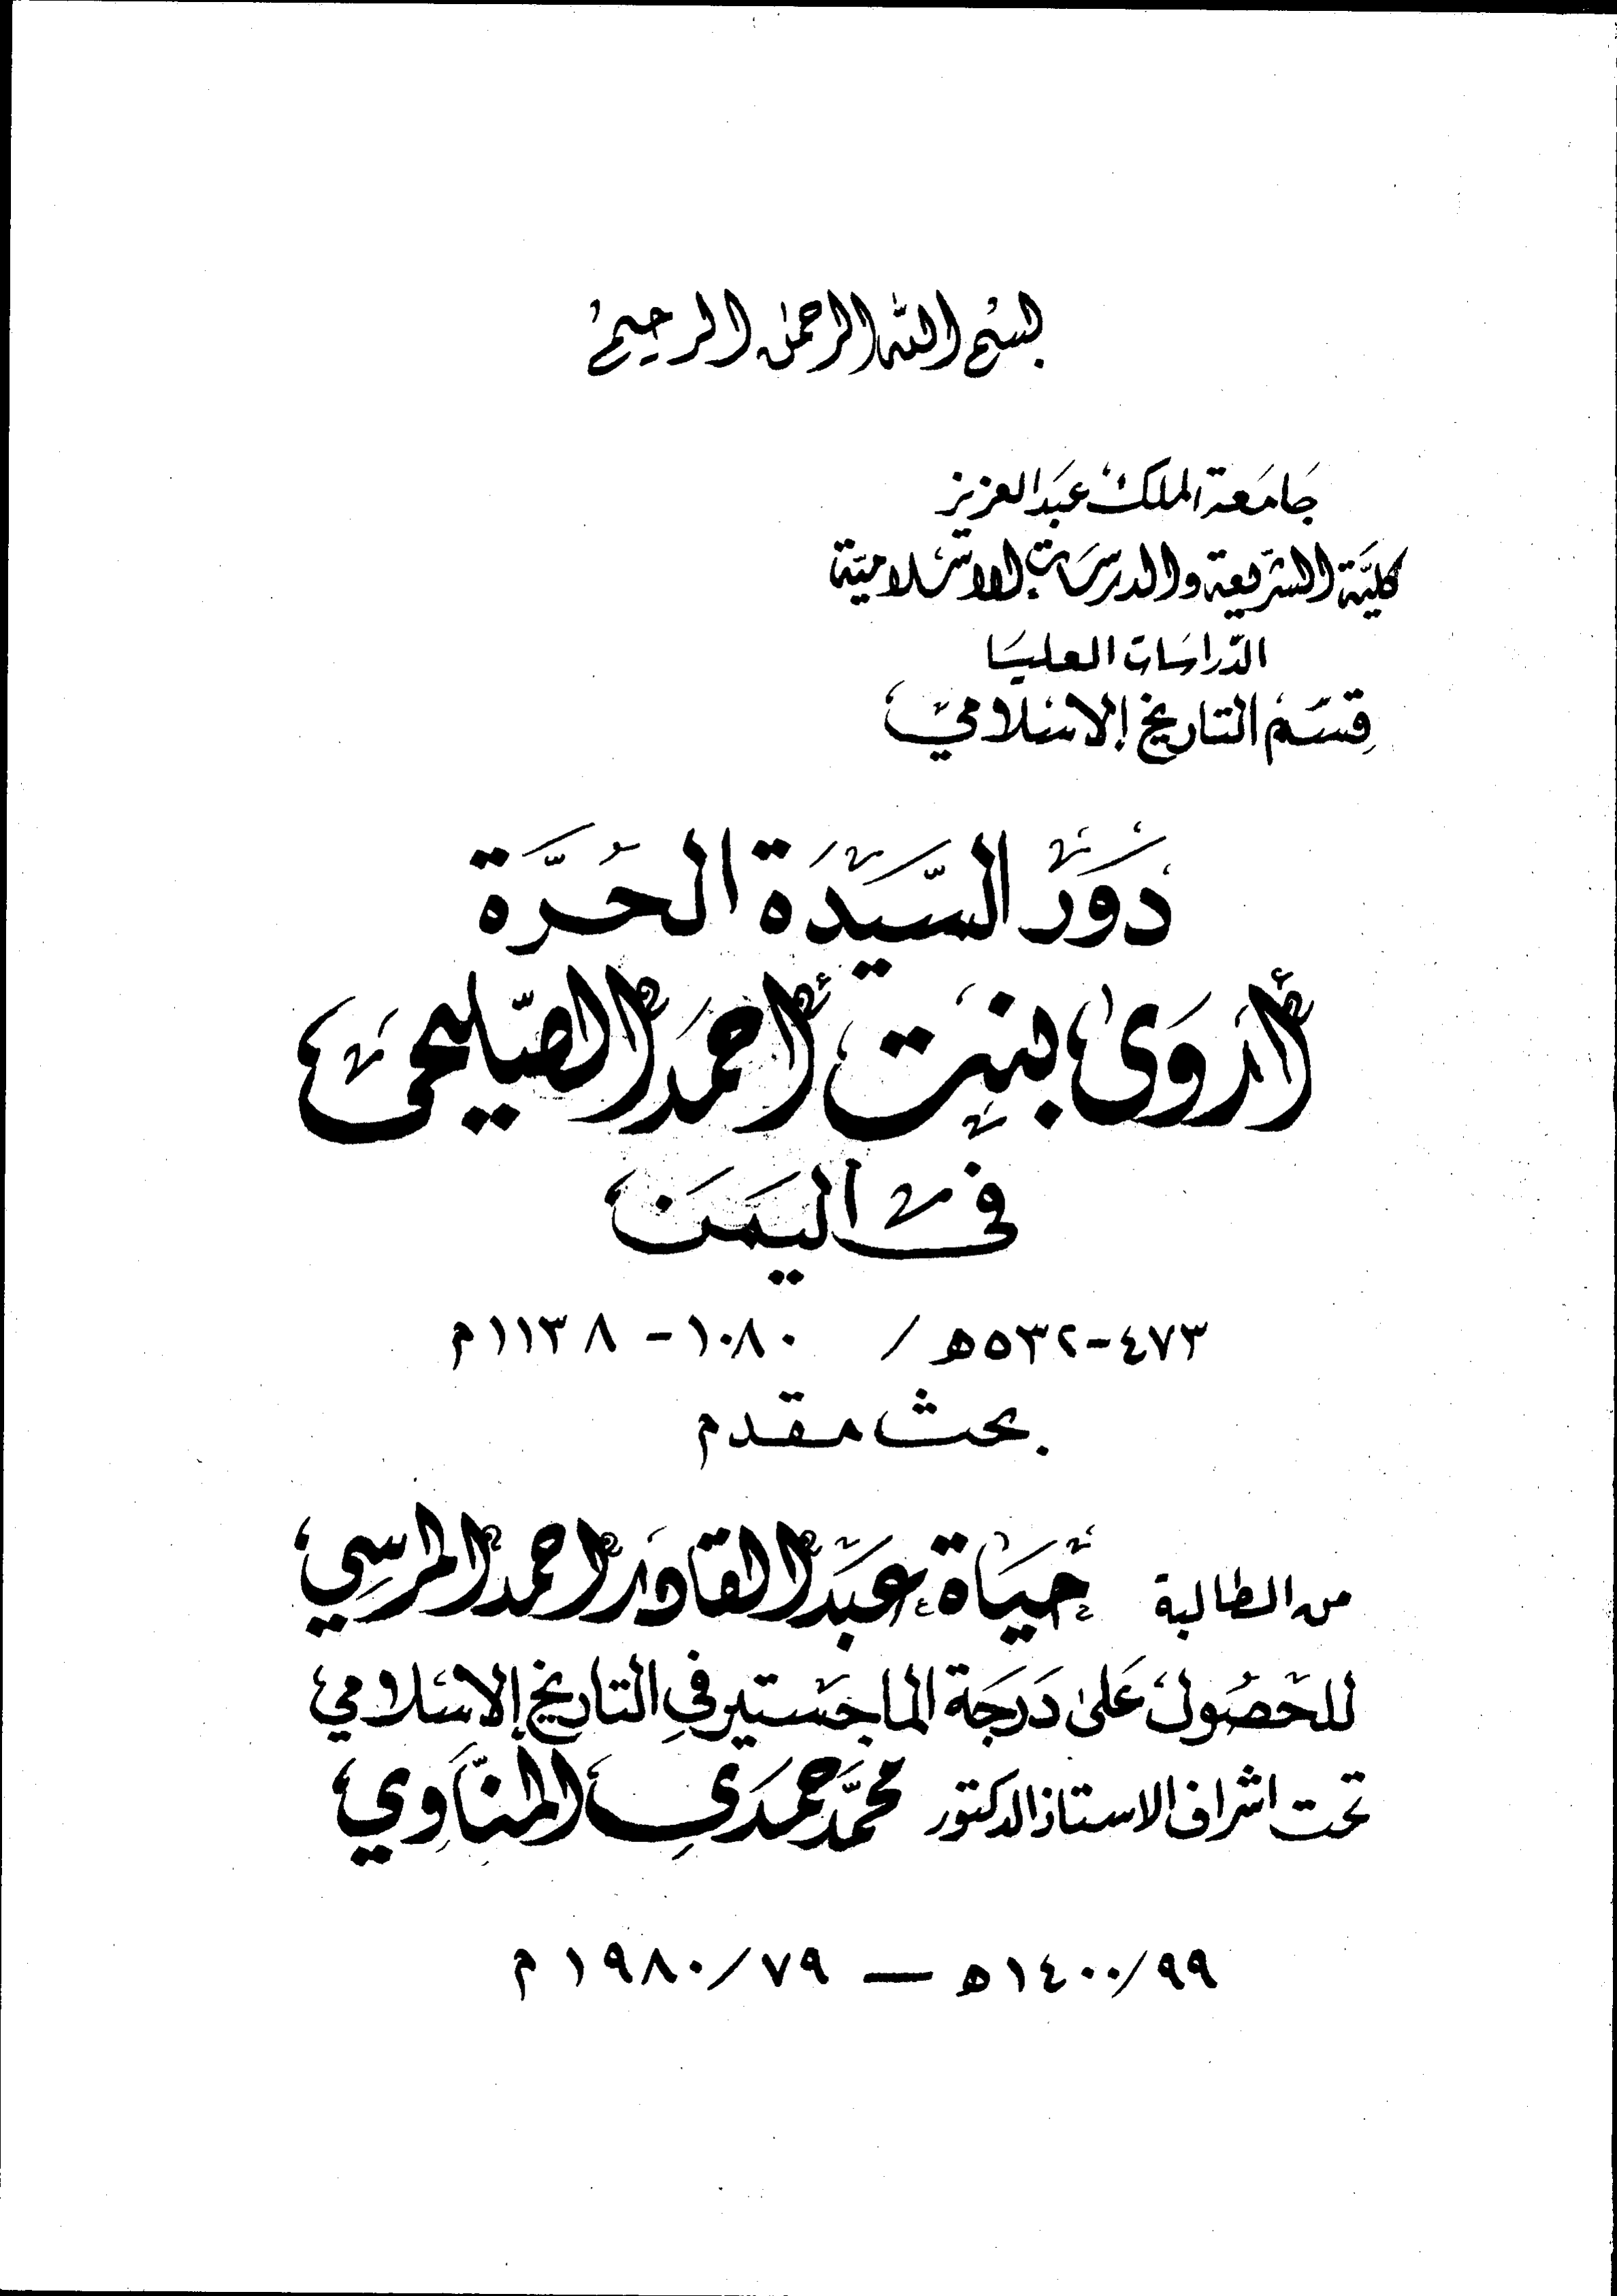 بسم الله الرحمن الرحيم
جَامعَة الملك عبَد العزيز
كليَّة الشريعة والدراسَات الإسلاميَّة
الدّراسَات العليَا
قِسَم التاريخ الإسلامي
دَوَر السَّيدَة الحُرَّة
أروَىٰ بنت أحمَد الصّليحى
فى اليَمَن
٤٧٣-٥٣٢ه / ١٠٨٠ - ١١٣٨م
بحث مقدم
من الطالبة حيَاة عبَد القادر احمد المرسِي
للحصُول عَلىٰ دَرجَة الماجَستير في التاريخ الإسلامي
تحت اشراف الاستاذ الدكتور محمَّد حمَدَي المنَاوي
٩٩/١٤٠٠ه — ٧٩/١٩٨٠م